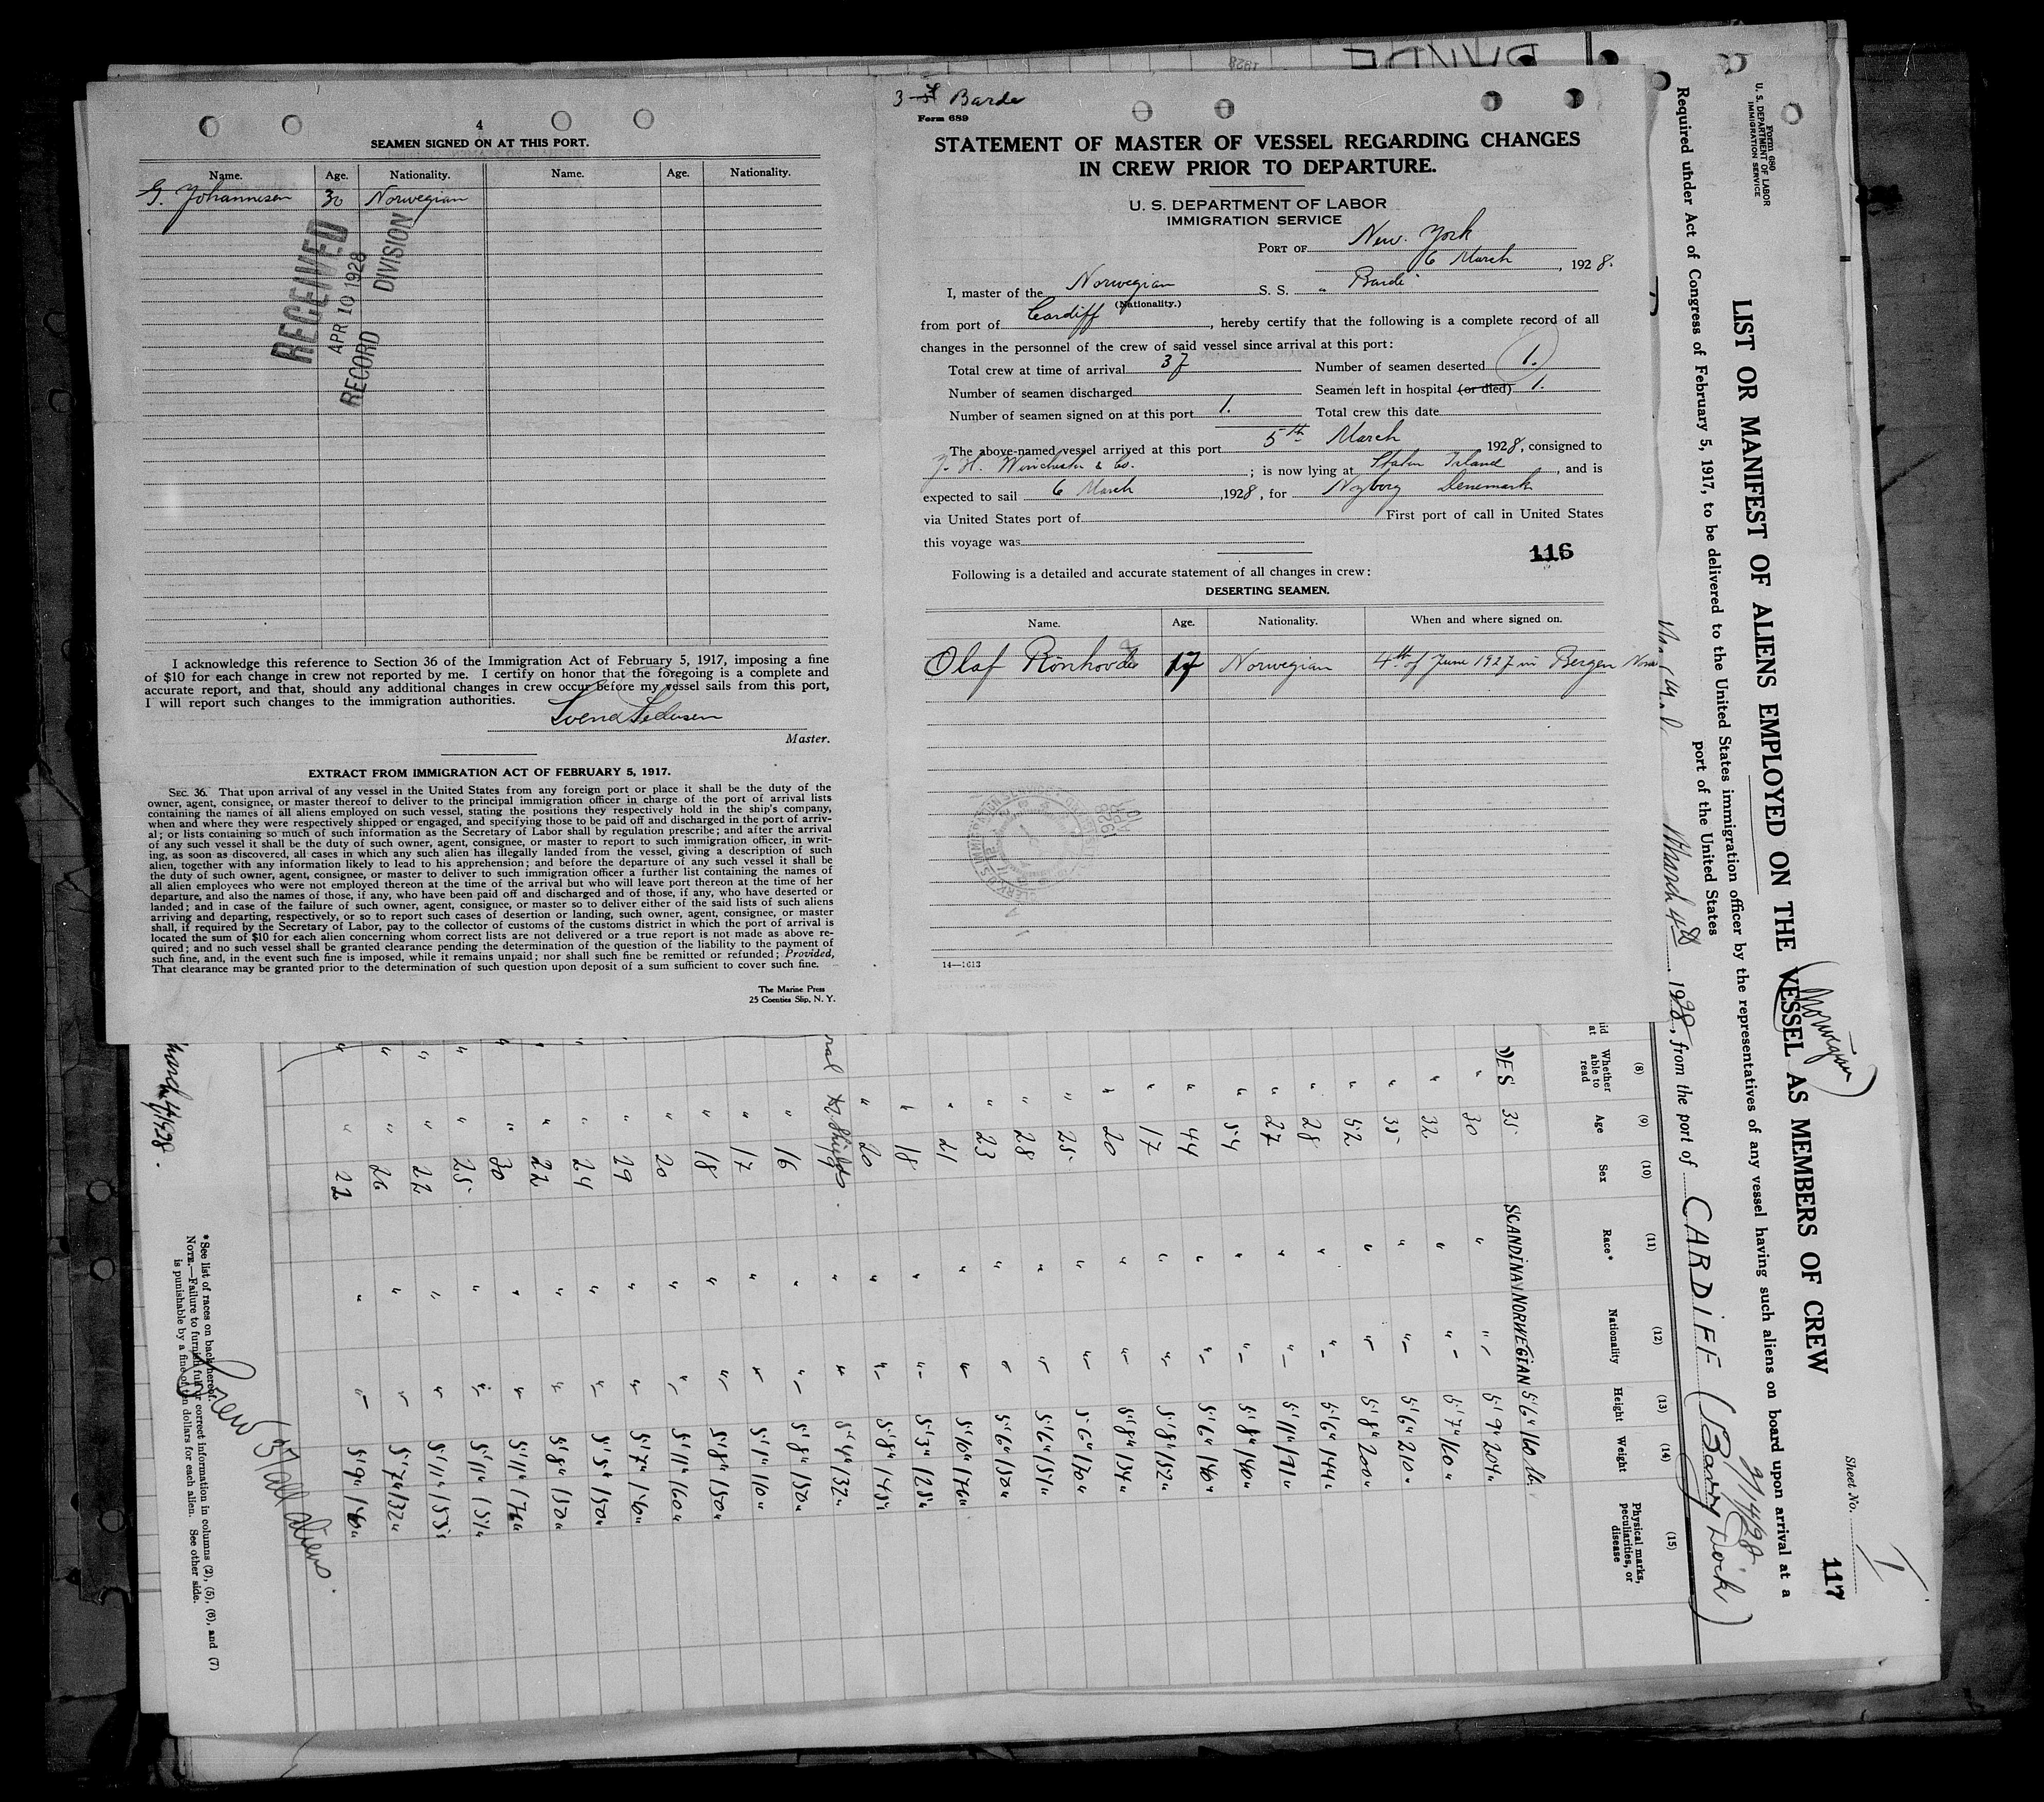 4
SEAMEN SIGNED ON AT THIS PORT.
Name. Age. Nationality. Name. Age. Nationality.
G. Johannesen 30 Norwegian
RECEIVED
APR 10 1928
RECORD DIVISION
I acknowledge this reference to Section 36 of the Immigration Act of February 5, 1917, imposing a fine
of $10 for each change in crew not reported by me. I certify on honor that the foregoing is a complete and
accurate report, and that, should any additional changes in crew occur before my vessel sails from this port,
I will report such changes to the immigration authorities.
Master.
EXTRACT FROM IMMIGRATION ACT OF FEBRUARY 5, 1917.
SEC. 36. That upon arrival of any vessel in the United States from any foreign port or place it shall be the duty of the
owner, agent, consignee, or master thereof to deliver to the principal immigration officer in charge of the port of arrival lists
containing the names of all aliens employed on such vessel, stating the positions they respectively hold in the ship's company,
when and where they were respectively shipped or engaged, and specifying those to be paid off and discharged in the port of arriv-
al; or lists containing so much of such information as the Secretary of Labor shall by regulation prescribe; and after the arrival
of any such vessel it shall be the duty of such owner, agent, consignee, or master to report to such immigration officer, in writ-
ing, as soon as discovered, all cases in which any such alien has illegally landed from the vessel, giving a description of such
alien, together with any information likely to lead to his apprehension; and before the departure of any such vessel it shall be
the duty of such owner, agent, consignee, or master to deliver to such immigration officer a further list containing the names of
all alien employees who were not employed thereon at the time of the arrival but who will leave port thereon at the time of her
departure, and also the names of those, if any, who have been paid off and discharged and of those, if any, who have deserted or
landed; and in case of the failure of such owner, agent, consignee, or master so to deliver either of the said lists of such aliens
arriving and departing, respectively, or so to report such cases of desertion or landing, such owner, agent, consignee, or master
shall, if required by the Secretary of Labor, pay to the collector of customs of the customs district in which the port of arrival is
located the sum of $10 for each alien concerning whom correct lists are not delivered or a true report is not made as above re-
quired; and no such vessel shall be granted clearance pending the determination of the question of the liability to the payment of
such fine, and, in the event such fine is imposed, while it remains unpaid; nor shall such fine be remitted or refunded; Provided,
That clearance may be granted prior to the determination of such question upon deposit of a sum sufficient to cover such fine.
The Marine Press
25 Coenties Slip, N. Y.
Barde
Form 689
STATEMENT OF MASTER OF VESSEL REGARDING CHANGES
IN CREW PRIOR TO DEPARTURE.
U. S. DEPARTMENT OF LABOR
IMMIGRATION SERVICE
PORT OF New York
6 March, 1928.
I, master of the Norwegian S. S. "Barde"
(Nationality.)
from port of Cardiff, hereby certify that the following is a complete record of all
changes in the personnel of the crew of said vessel since arrival at this port:
Total crew at time of arrival 37 Number of seamen deserted 1.
Number of seamen discharged Seamen left in hospital (or died) 1.
Number of seamen signed on at this port 1. Total crew this date
The above-named vessel arrived at this port 5th March 1928, consigned to
J. H. Winchester & Co.; is now lying at Staten Island, and is
expected to sail 6 March, 1928, for Nyborg Denemark
via United States port of First port of call in United States
this voyage was
116
Following is a detailed and accurate statement of all changes in crew:
DESERTING SEAMEN.
Name. Age. Nationality. When and where signed on.
Olaf Rönhovde 17 Norwegian 4th of June 1927 in Bergen
14—1613
Form 680
U. S. DEPARTMENT OF LABOR
IMMIGRATION SERVICE
Sheet No. 1
117
LIST OR MANIFEST OF ALIENS EMPLOYED ON THE VESSEL AS MEMBERS OF CREW
(Norwegian)
Required under Act of Congress of February 5, 1917, to be delivered to the United States immigration officer by the representatives of any vessel having such aliens on board upon arrival at a
port of the United States
March 4th 1928, from the port of CARDIFF (Barry Dock)
(8) (9) (10) (11) (12) (13) (14) (15)
Whether able to read Age Sex Race* Nationality Height Weight Physical marks, peculiarities, or disease
YES 35 SCANDINAV NORWEGIAN 5'6" 160 lb.
" 30 " " 5'9" 204"
" 32 " " 5'7" 160"
" 35 " " 5'6" 210"
" 52 " " 5'8" 200"
" 28 " " 5'6" 144"
" 27 " " 5'11" 191"
" 54 " " 5'8" 140"
" 44 " " 5'6" 140"
" 17 " " 5'8" 152"
" 20 " " 5'8" 134"
" 25 " " 5'6" 170"
" 28 " " 5'6" 151"
" 23 " " 5'6" 150"
" 21 " " 5'10" 176"
" 18 " " 5'3" 125"
" 20 " " 5'8" 145"
" " 5'4" 132"
" 16 " " 5'8" 150"
" 17 " " 5'1" 110"
" 18 " " 5'8" 150"
" 20 " " 5'11" 160"
" 29 " " 5'7" 160"
" 24 " " 5'5" 150"
" 22 " " 5'8" 150"
" 30 " " 5'11" 176"
" 25 " " 5'11" 151"
" 22 " " 5'11" 153"
" 26 " " 5'7" 132"
" 22 " " 5'9" 160"
Crew 37 all aliens.
* See list of races on back hereof.
NOTE.—Failure to furnish full or correct information in columns (2), (5), (6), and (7)
is punishable by a fine of ten dollars for each alien. See other side.